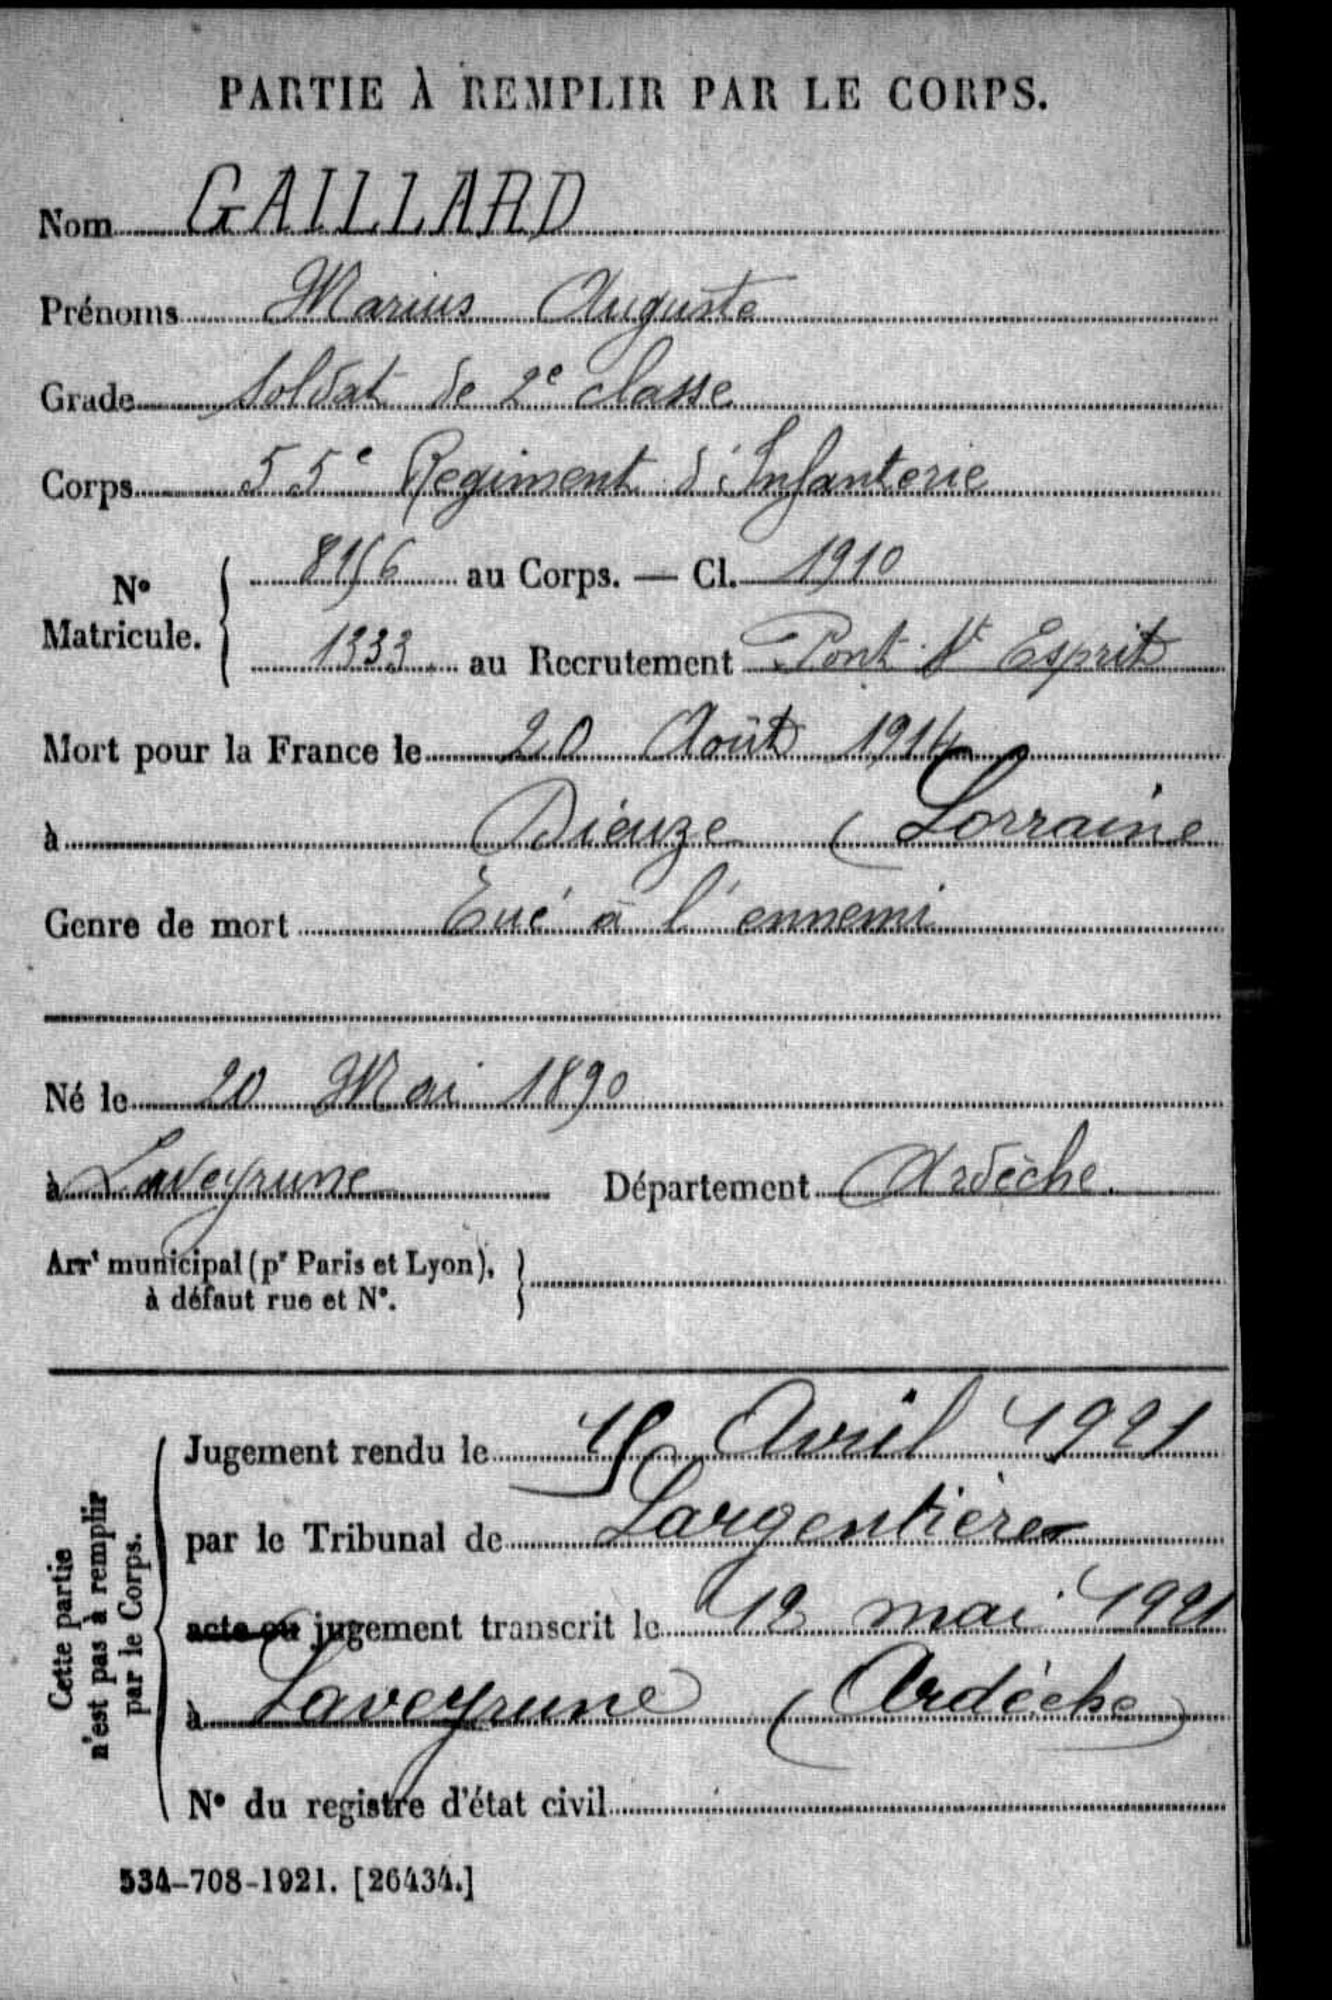 PARTIE À REMPLIR PAR LE CORPS.
Nom GAILLARD
Prénoms Marius Auguste
Grade Soldat de 2e classe
Corps 55e Regiment d'Infanterie
N° Matricule.
8156 au Corps. — Cl. 1910
1333 au Recrutement Pont St Esprit
Mort pour la France le 20 Août 1914
à Dieuze (Lorraine
Genre de mort Tué à l'ennemi
Né le 20 Mai 1890
à Laveyrune Département Ardèche.
Arrt municipal (pr Paris et Lyon),
à défaut rue et N°.
Cette partie
n'est pas à remplir
par le Corps.
Jugement rendu le Avril 1921
par le Tribunal de Largentière
acte ou jugement transcrit le 12 mai 1921
à Laveyrune (Ardèche)
N° du registre d'état civil
534-708-1921. [26434.]